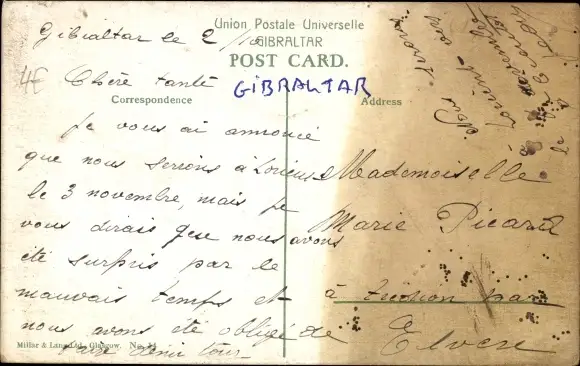 Union Postale Universelle
GIBRALTAR
POST CARD.
Gibraltar le 2/10
4€
Chère tante
GIBRALTAR
Correspondence
Address
je vous ai annoncé
que nous serions à
le 3 novembre, mais je
vous dirais que nous avons
été surpris par le
mauvais temps et
nous avons été obligé de
faire demi tour
Mademoiselle
Marie Picard
à par
Elven
Millar & Lang, Ltd., Glasgow. No.